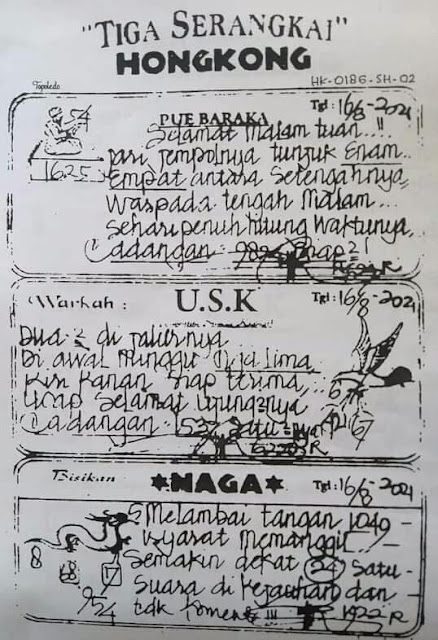 "TIGA SERANGKAI"
HONGKONG
HK-0186-SH-02
Topoledo
54
1625
PUE BARAKA
Tgl: 16/8-2021
Selamat Malam tuan... !!
Dari jempolnya tunjuk Enam..
Empat antara Setengahnya,,
Waspada tengah Malam...
Sehari penuh hitung Waktunya,
Cadangan
Warkah :
U.S.K
Tgl: 16/8-2021
Dua-2 di jalurnya
Di awal Minggu Tiga lima
Kiri Kanan Siap terima,..
Ucap Selamat ujung2nya
Cadangan: 1537 Satu-2nya
67
Bisikan
NAGA
Tgl: 16/8-2021
Melambai tangan 1049 -
isyarat Memanggil
Semakin dekat 24 Satu -
Suara di Kejauhan dan
tdk Koment !!! 1922-R
8
68
17
9/54